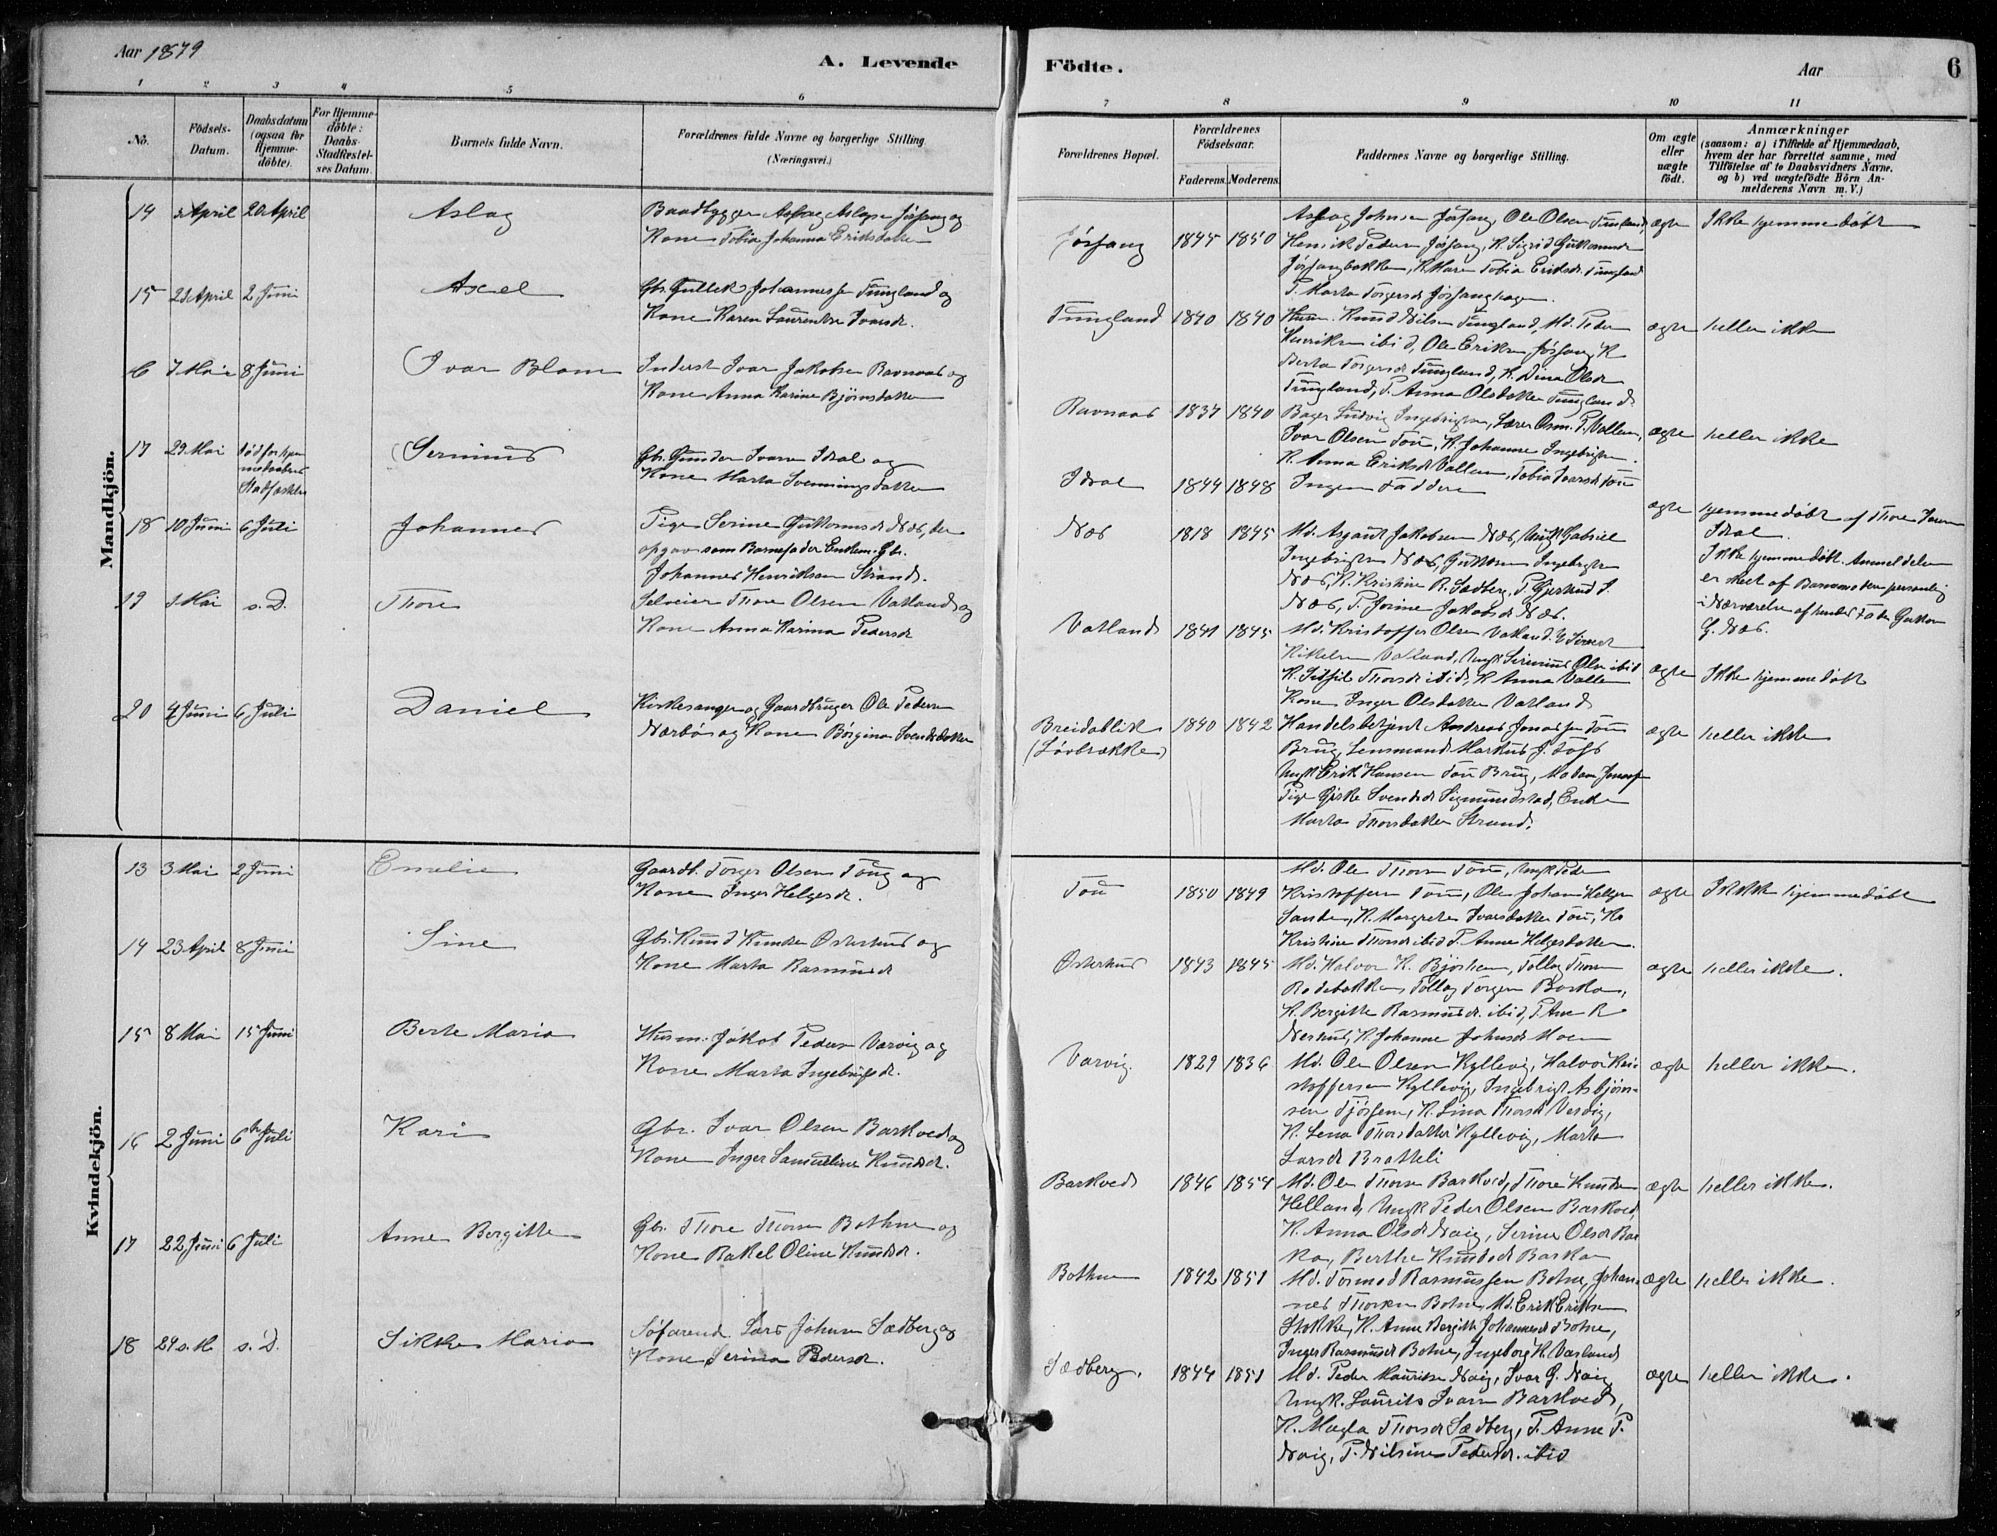 Aar 1879
A. Levende
Födte.
Aar
6
1 2 3 4 5 6 7 8 9 10 11
No.
Födsels-
Datum.
Daabsdatum
(ogsaa for
Hjemme-
döbte).
For Hjemme-
döbte:
Daabs-
Stadfæstel-
ses Datum.
Barnets fulde Navn.
Forældrenes fulde Navne og borgerlige Stilling
(Næringsvei.)
Forældrenes Bopæl.
Forældrenes
Födselsaar.
Faderens. Moderens.
Faddernes Navne og borgerlige Stilling.
Om ægte
eller
uægte
födt.
Anmærkninger
(saasom: a) i Tilfælde af Hjemmedaab,
hvem der har forrettet samme, med
Tilföielse af to Daabsvidners Navne,
og b) ved uægtefödte Börn An-
melderens Navn m. V.)
Mandkjön.
14 April April Aslag
Baadbygger Aslag Aslagsen Jøssang og
Kone Tobia Johanna Eriksdatter
Jøssang 1845 1850
Aslag Johnsen Jøssang, Ole Olsen Tungland,
Henrik Pedersen Jøssang, K. Sigrid Guttormsdr
Jøssangbakken, K. Maren Tobia Eriksdr. Tungland
P. Marta Torgersdr Jøssanghagen.
ægte Ikke hjemmedøbt
15 April 2 Juni Axel
Gbr. Gullek Johannessen Tungland og
Kone Karen Laurentse Ivarsdr.
Tungland 1840 1840
Husm. Knud Nilsen Tungland, Md. Peder
Henriksen ibid, Ole Eriksen Jøssang, K
Berta Torgersdr Tungland, K. Dina Olsdr
Tungland, P. Anna Olsdatter Tungland
ægte heller ikke
6 7 Mai 8 Juni Ivar Blom
Inderst Ivar Jakobsen Ravnaas og
Kone Anna Karine Bjørnsdatter
Ravnaas 1837 1840
Bager Ludvig Ingebrigtsen, Lærer Osm. T. Vatland,
Ivar Olsen Tou, K. Johanne Ingebrigtsen
K. Anna Eriksdr Vatland, Tobia Ivarsdr Tou
ægte heller ikke
17 29 Mai død før hjem
medaabens
Stadfæstelse
Serinius
Gbr. Gunder Ivarsen Idsal og
Kone Marta Svenningsdatter
Idsal 1844 1848 Ingen Faddere
ægte hjemmedøbt af Thore Iversen
Idsal.
18 10 Juni 6 Juli Johannes
Pige Serine Guttormsdr Næs, der
opgav som Barnefader Enkem. Gbr.
Johannes Henriksen Strand.
Næs 1818 1845
Md. Asgaut Jakobsen Næs, Ungk Gabriel
Ingebrigtsen Næs, Guttorm Ingebrigtsen
Næs, K. Kristine R. Sædberg, P. Gjertrud I.
Næs, P. Jorine Jakobsdr Næs.
Ikke hjemmedøbt. Anmeldelsen
er skeet af Barnemoderen personlig
i Nærværelse af hendes Fader Guttorm
G. Næs.
19 Mai s. D. Thore
Selveier Thore Olsen Vatland og
Kone Anna Karina Pedersdr
Vatland 1841 1845
Md. Kristoffer Olsen Vatland,
Vatland, Ungk Serinius Olsen ibid
K. Sissil Thorsdr ibid, K Anna Vatland
Kone Inger Olsdatter Vatland
ægte Ikke hjemmedøbt
20 4 Juni 6 Juli Daniel
Kirkesanger og Gaardbruger Ole Pedersen
Nærbø og Kone Børgine Svendsdatter
Breidablik
(Løvbrække)
1840 1842
Handelsbetjent Andreas Jonassen Tou
Brug, Lensmand Markus J. Tofs
Ungk Erik Hansen Tou Brug, Madam Jonassen
Pige Giske Svendsdr Sigmundstad, Enke
Marta Thorsdatter Strand.
ægte heller ikke
Kvindekjön.
13 3 Mai 2 Juni Emelie
Gaardb. Torger Olsen Toug og
Kone Inger Helgesdr.
Tou 1850 1849
Md. Ole Thorsen Tou, Ungk Peder
Kristoffersen Tou, Ole Johan Helgesen
Sanden, K. Margrete Ivarsdatter Tou, K
Kristine Thorsdr ibid P. Anne Helgesdatter
ægte Ikkke hjemmedøbt
14 23 April 8 Juni Sine
Gbr. Knud Knudsen Østerhus og
Kone Marta Rasmusdr
Østerhus 1843 1845
Md. Halvor K. Bjørheim, Tollag Thorsen
Rødebakken, Tollag Torgersen Barka,
K. Bergitte Rasmusdr. ibid, P. Ane R
Nerhus, K. Johanne Johnsdr Moen
ægte heller ikke.
15 8 Mai 15 Juni Berte Maria
Husm. Jakob Pedersen Varvig og
Kone Marta Ingebrigtsdr.
Varvig. 1829 1836
Md. Ole Olsen Kyllevig, Halvor Kri-
stoffersen Kyllevig, Ingebrigt Asbjørn-
sen Tjøssem, K. Lina Thorsdr Vervig,
K. Lena Thorsdatter Kyllevig, Marta
Larsdr Bratteli
ægte heller ikke.
16 2 Juni 6te Juli Kari
Gbr. Ivar Olsen Barkved og
Kone Inger Samueline Knudsdr.
Barkved 1846 1854
Md. Ole Thorsen Barkved, Thore Knudsen
Helland, Ungk Peder Olsen Barkved
K. Anna Olsdr Naig, Serine Olsdr Bar
ka, Berthe Knudsdr Barka
ægte heller ikke.
17 22 Juni 6 Juli Anne Bergitte
Gbr. Thore Thorsen Bothne og
Kone Rakel Oline Knudsdr.
Bothne 1842 1851
Md. Tormod Rasmussen Botne, Johan-
nes Thorsen Botne, Md. Erik Eriksen
Stokke, K. Anne Bergitte Johannesdr Botne,
Inger Rasmusdr Botne, Ingeborg K. Vasland
ægte heller ikke.
18 24 s. M s. D. Sikke Maria
Søfarend. Lars Johnsen Sædberg og
Kone Serina Pedersdr.
Sædberg. 1844 1851
Md. Peder Lauritsen Naig, Ivar G. Naig
Ungk. Laurits Ivarsen Barkved,
K. Magla Thorsdr Sædberg, P. Anne P.
Naig, P. Nilsine Pedersdr. ibid
ægte heller ikke.